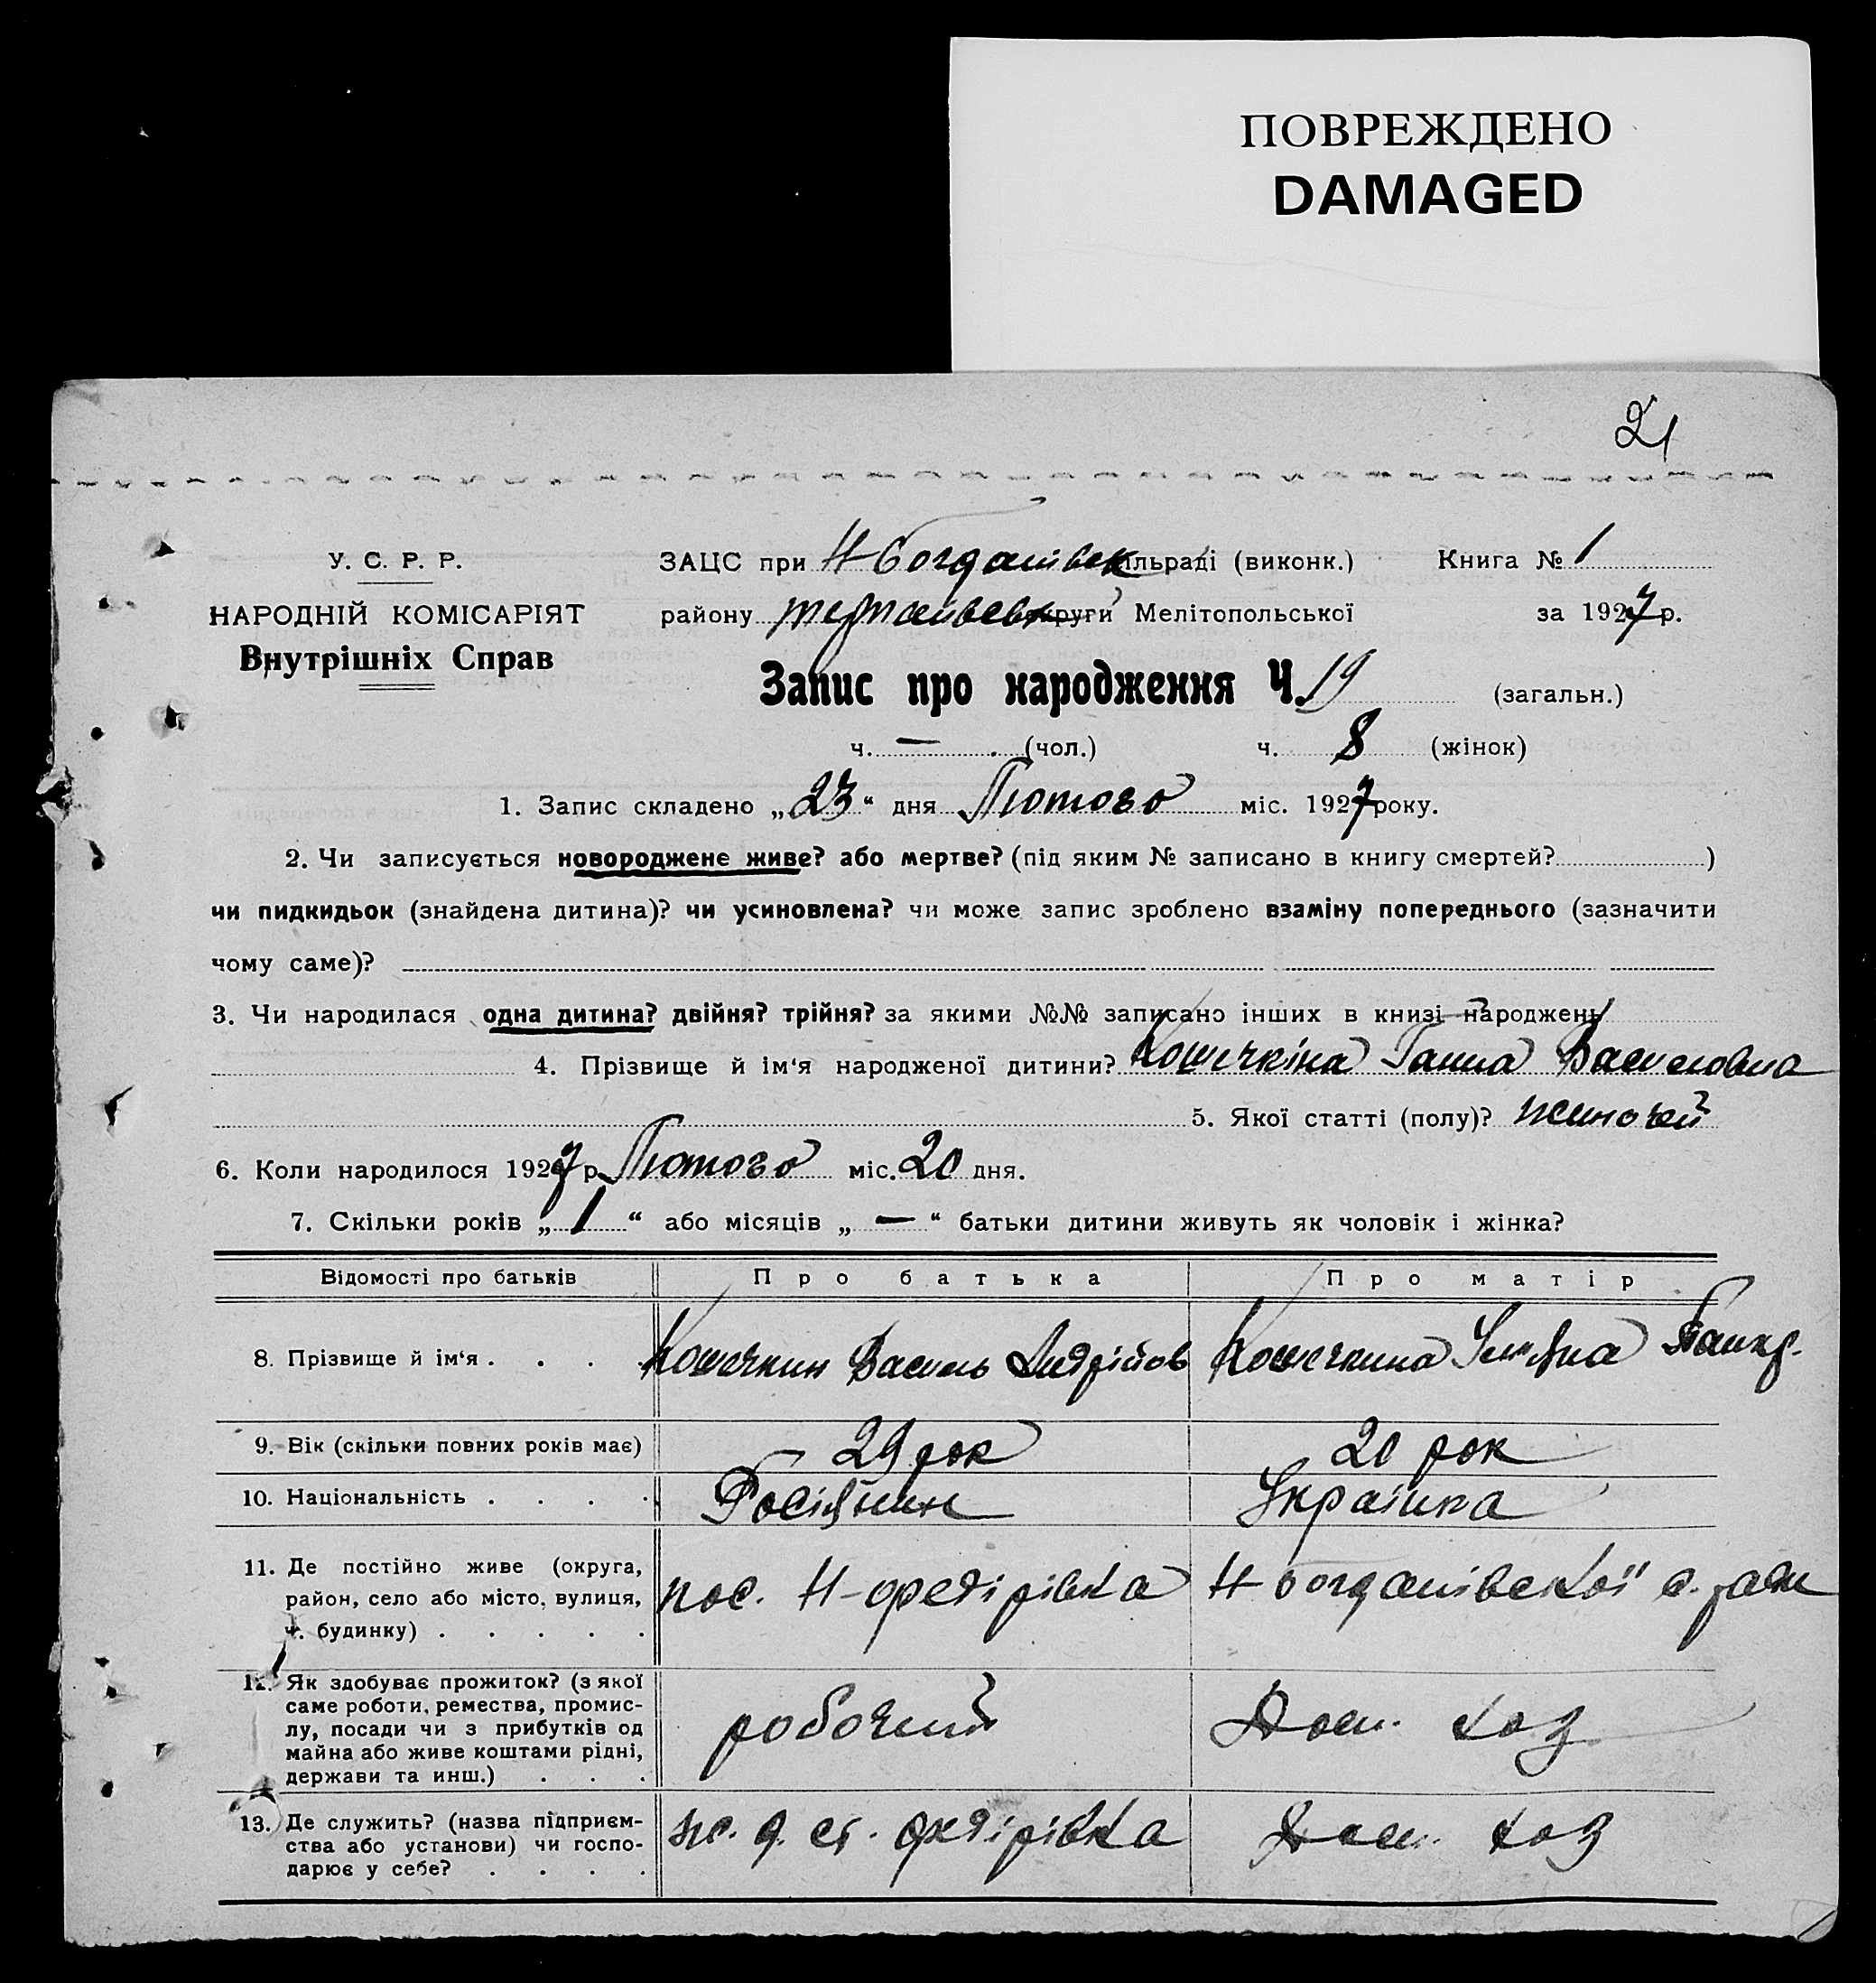 ПОВРЕЖДЕНО
DAMAGED
21
У. С. Р. Р.
НАРОДНІЙ КОМІСАРІЯТ
Внутрішніх Справ
ЗАЦС при Н Богданівск ільраді (виконк.) Книга № 1
району округи Мелітопольської за 1927 р.
Запис про народження Ч. 19 (загальн.)
ч. — (чол.) ч. 8 (жінок)
1. Запис складено „23“ дня Лютого міс. 1927 року.
2. Чи записується новороджене живе? або мертве? (під яким № записано в книгу смертей? )
чи пидкидьок (знайдена дитина)? чи усиновлена? чи може запис зроблено взаміну попереднього (зазначити
чому саме)?
3. Чи народилася одна дитина? двійня? трійня? за якими №№ записано інших в книзі народжень
4. Прізвище й ім‘я народженої дитини? Кошечкіна Ганна Василовна
5. Якої статті (полу)? жиночей
6. Коли народилося 1927 р. Лютого міс. 20 дня.
7. Скільки років „ 1 “ або місяців „ — “ батьки дитини живуть як чоловік і жінка?
Відомості про батьків Про батька Про матір
8. Прізвище й ім‘я . . . . Кошечкин Василь Андрійов Кошечкина
9. Вік (скільки повних років має) 29 рок 20 рок
10. Національність . . . . Росіянин Украінка
11. Де постійно живе (округа,
район, село або місто, вулиця,
ч. будинку) . . . . .
пос. Н-федірівка Н Богданівскої с. ради
12. Як здобуває прожиток? (з якої
саме роботи, ремества, промис-
лу, посади чи з прибутків од
майна або живе коштами рідні,
держави та инш.) . . .
робочий Дом. хоз
13. Де служить? (назва підприєм-
ства або установи) чи госпо-
дарює у себе? . . . .
ст. федірівка Дом. хоз